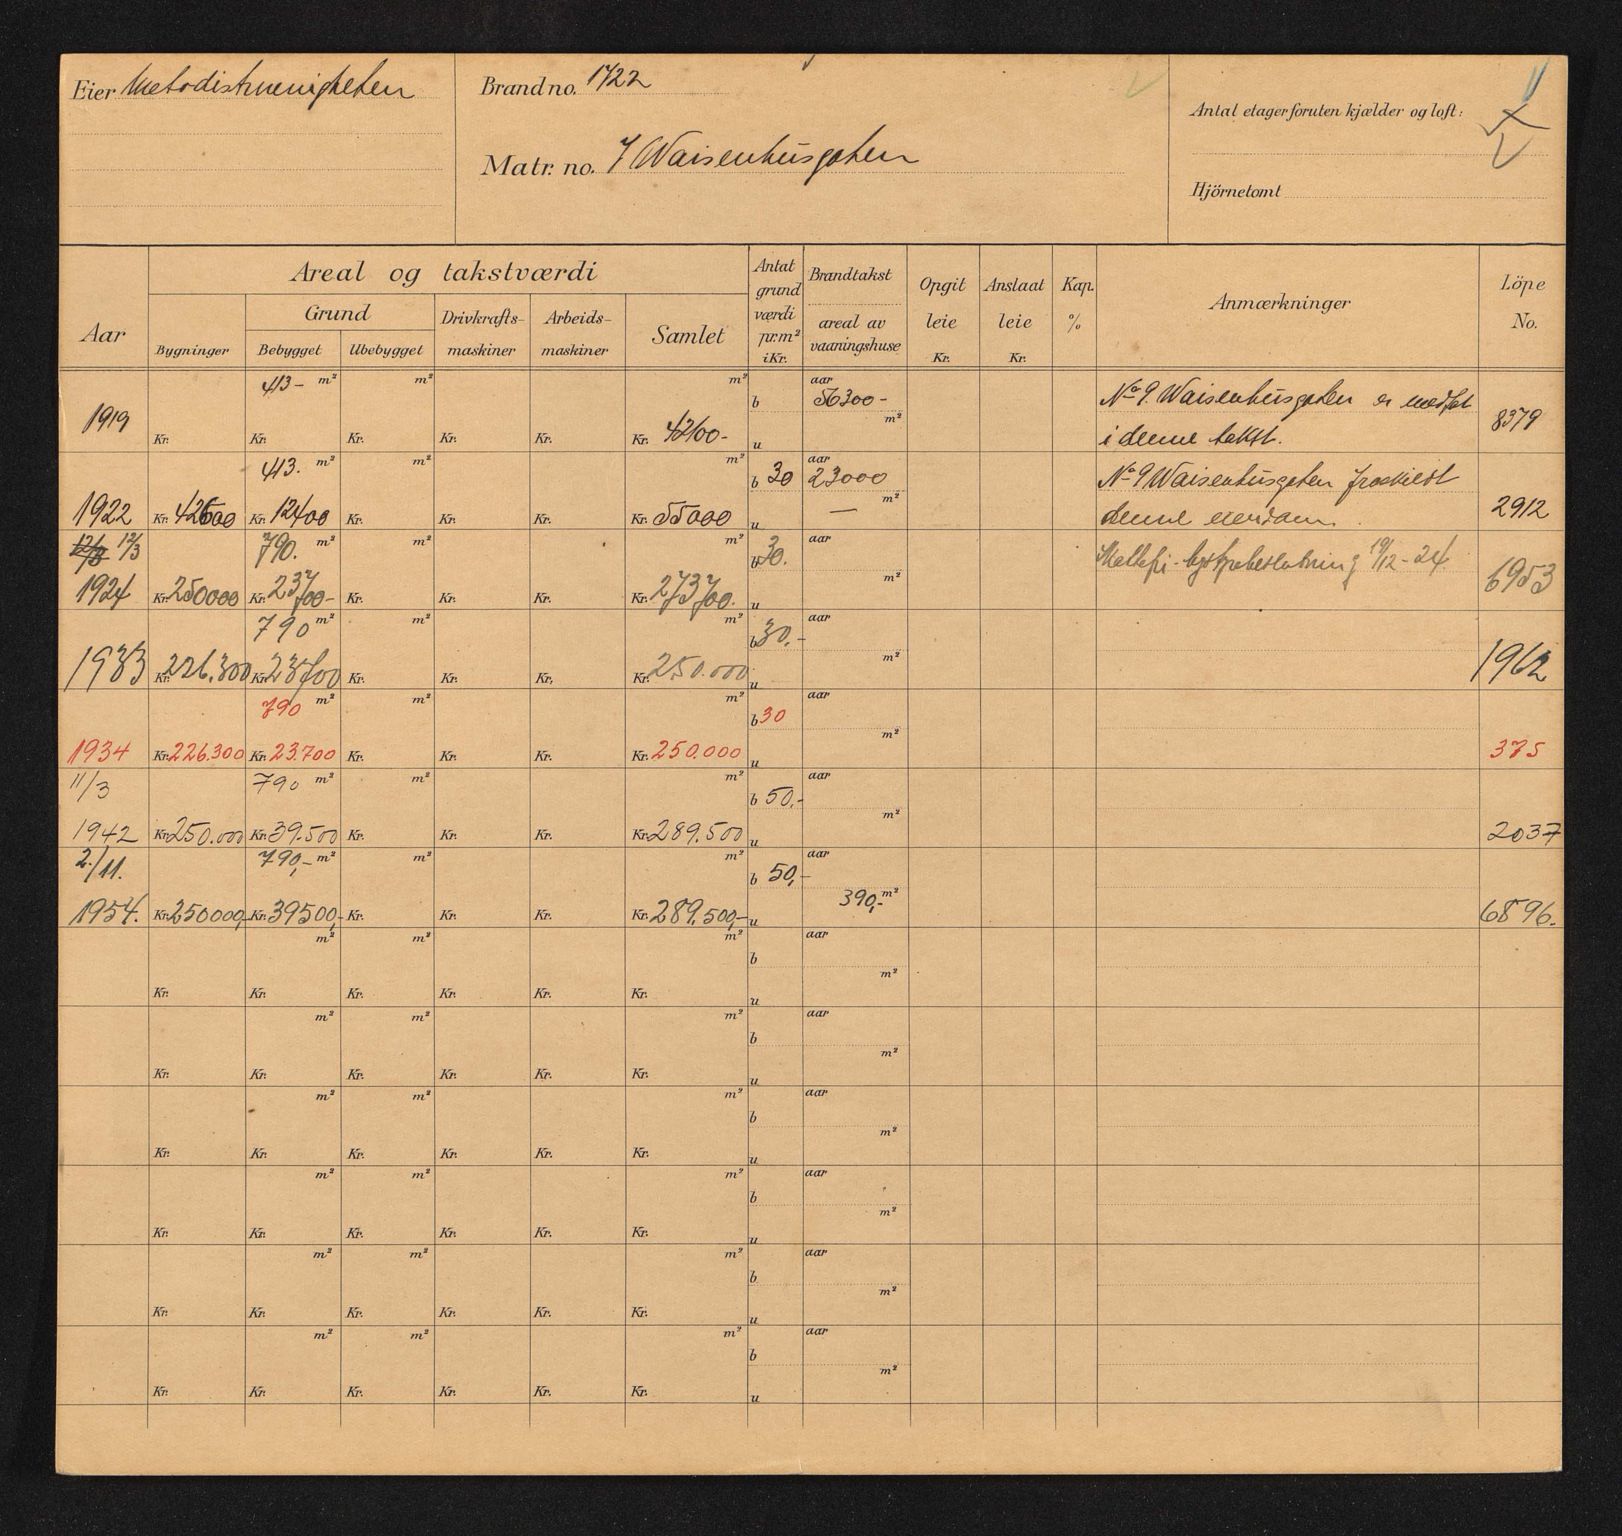 Eier Metodistmenigheten
Brand no. 1722
Matr. no. 7 Waisenhusgaten
Antal etager foruten kjælder og loft:
Hjörnetomt
Aar
Areal og takstværdi
Grund
Bygninger Bebygget Ubebygget
Drivkrafts-maskiner
Arbeids-maskiner
Samlet
Antat grund værdi pr. m² i Kr.
Brandtakst
areal av vaaningshuse
Opgit leie Kr.
Anslaat leie Kr.
Kap. %
Anmærkninger
Löpe No.
413- m² m² m² aar
b 56300- No 9 Waisenhusgaten er medtat
m²
1919 Kr. Kr. Kr. Kr. Kr. Kr. 42100- u i denne takst. 8379
413. m² m² m² aar
b 30 23000 No 9 Waisenhusgaten fraskilt
m²
1922 Kr. 42600 Kr. 12400 Kr. Kr. Kr. Kr. 55000 u — denne eiendom. 2912
12/3 790. m² m² m² aar
b 30. 19/12-24
m²
1924 Kr. 250000 Kr. 23700- Kr. Kr. Kr. Kr. 273700. u 6953
790 m² m² m² aar
b 30.-
m²
1933 Kr. 226.300 Kr. 23700 Kr. Kr. Kr. Kr. 250.000 u 1962
790 m² m² m² aar
b 30
m²
1934 Kr. 226.300 Kr. 23.700 Kr. Kr. Kr. Kr. 250.000 u 375
11/3 790 m² m² m² aar
b 50.-
m²
1942 Kr. 250.000 Kr. 39.500 Kr. Kr. Kr. Kr. 289.500 u 2037
2./11. 790,- m² m² m² aar
b 50,-
390,- m²
1954. Kr. 250000,- Kr. 39500,- Kr. Kr. Kr. Kr. 289.500,- u 6896.
m² m² m² aar
b
m²
Kr. Kr. Kr. Kr. Kr. Kr. u
m² m² m² aar
b
m²
Kr. Kr. Kr. Kr. Kr. Kr. u
m² m² m² aar
b
m²
Kr. Kr. Kr. Kr. Kr. Kr. u
m² m² m² aar
b
m²
Kr. Kr. Kr. Kr. Kr. Kr. u
m² m² m² aar
b
m²
Kr. Kr. Kr. Kr. Kr. Kr. u
m² m² m² aar
b
m²
Kr. Kr. Kr. Kr. Kr. Kr. u